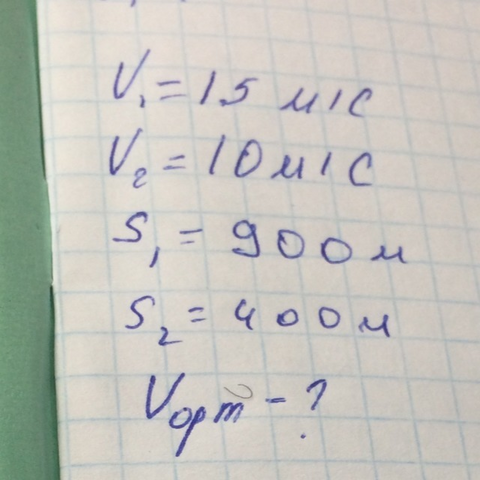 V₁ = 15 м/с
V₂ = 10 м/с
S₁ = 900 м
S₂ = 400 м
Vорт - ?